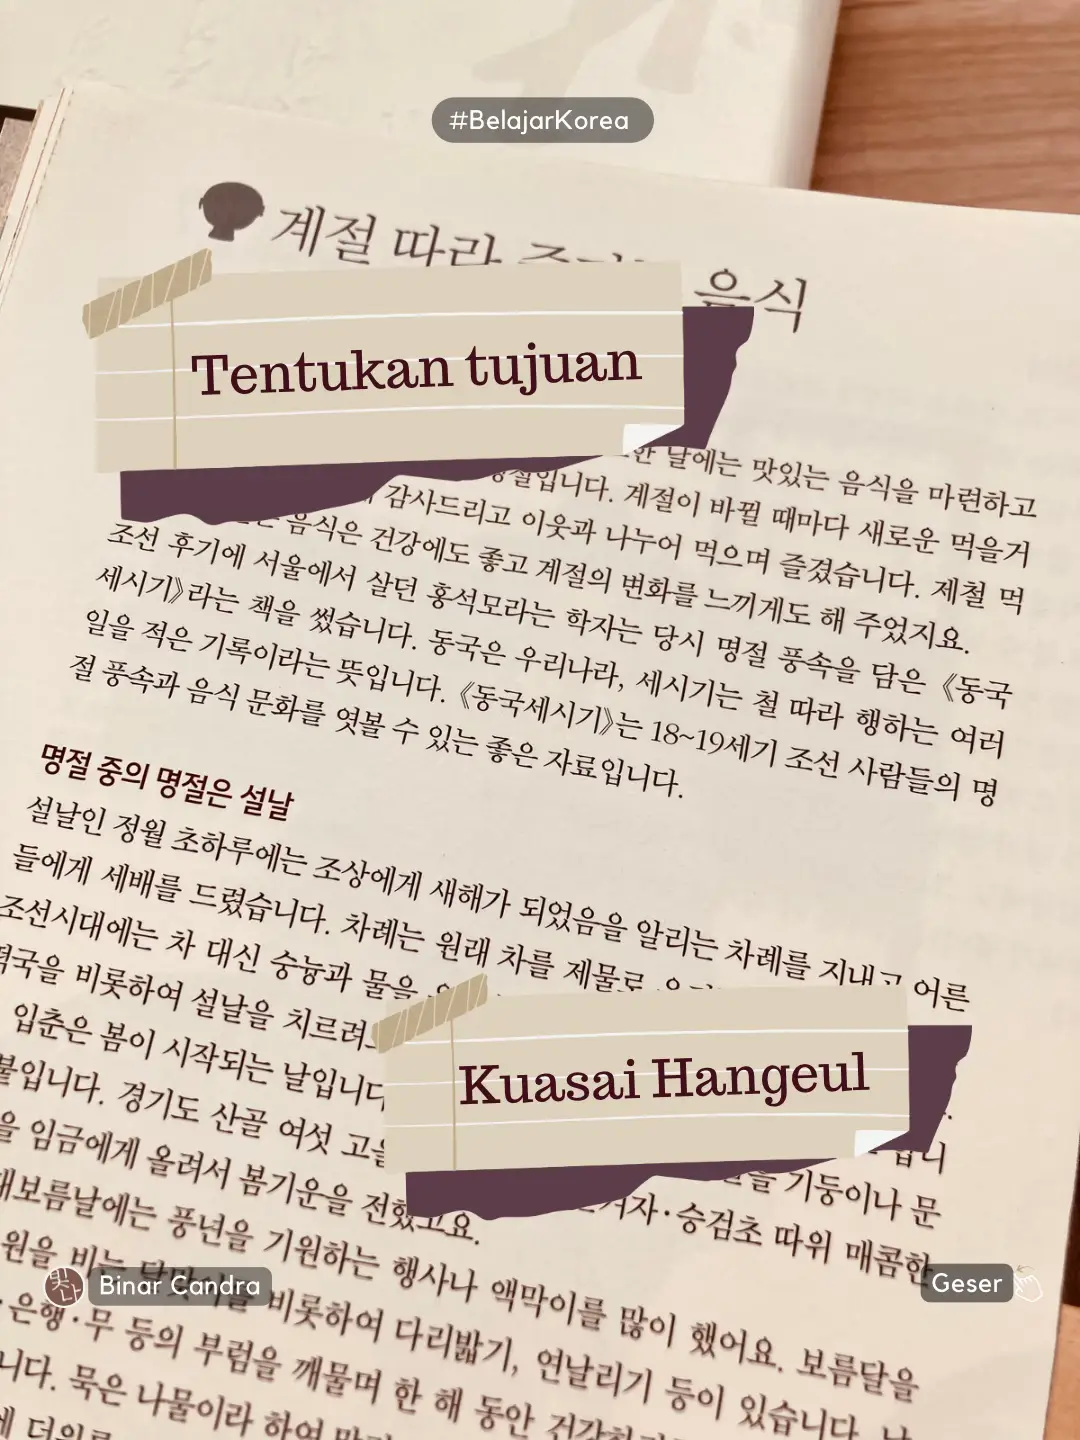 #BelajarKorea
계절 따라 음식
Tentukan tujuan
날에는 맛있는 음식을 마련하고
계절이 바뀔 때마다 새로운 먹을거
감사드리고 이웃과 나누어 먹으며 즐겼습니다. 제철 먹
음식은 건강에도 좋고 계절의 변화를 느끼게도 해 주었지요.
조선 후기에 서울에서 살던 홍석모라는 학자는 당시 명절 풍속을 담은 《동국
세시기》라는 책을 썼습니다. 동국은 우리나라, 세시기는 철 따라 행하는 여러
일을 적은 기록이라는 뜻입니다. 《동국세시기》는 18~19세기 조선 사람들의 명
절 풍속과 음식 문화를 엿볼 수 있는 좋은 자료입니다.
명절 중의 명절은 설날
설날인 정월 초하루에는 조상에게 새해가 되었음을 알리는 차례를 지내고 어른
들에게 세배를 드렸습니다. 차례는 원래 차를 제물로
조선시대에는 차 대신 숭늉과 물을
비롯하여 설날을
Kuasai Hangeul
입춘은 봄이 시작되는 날입니다
경기도 산골 여섯
기둥이나 문
임금에게 올려서 봄기운을 전했고요.
승검초 따위 매콤한
풍년을 기원하는 행사나 액막이를 많이 했어요. 보름달을
비는
비롯하여 다리밟기, 연날리기 등이 있습니다.
은행·무 등의 부럼을 깨물며 한 해 동안
묵은 나물이라 하여
Binar Candra
Geser